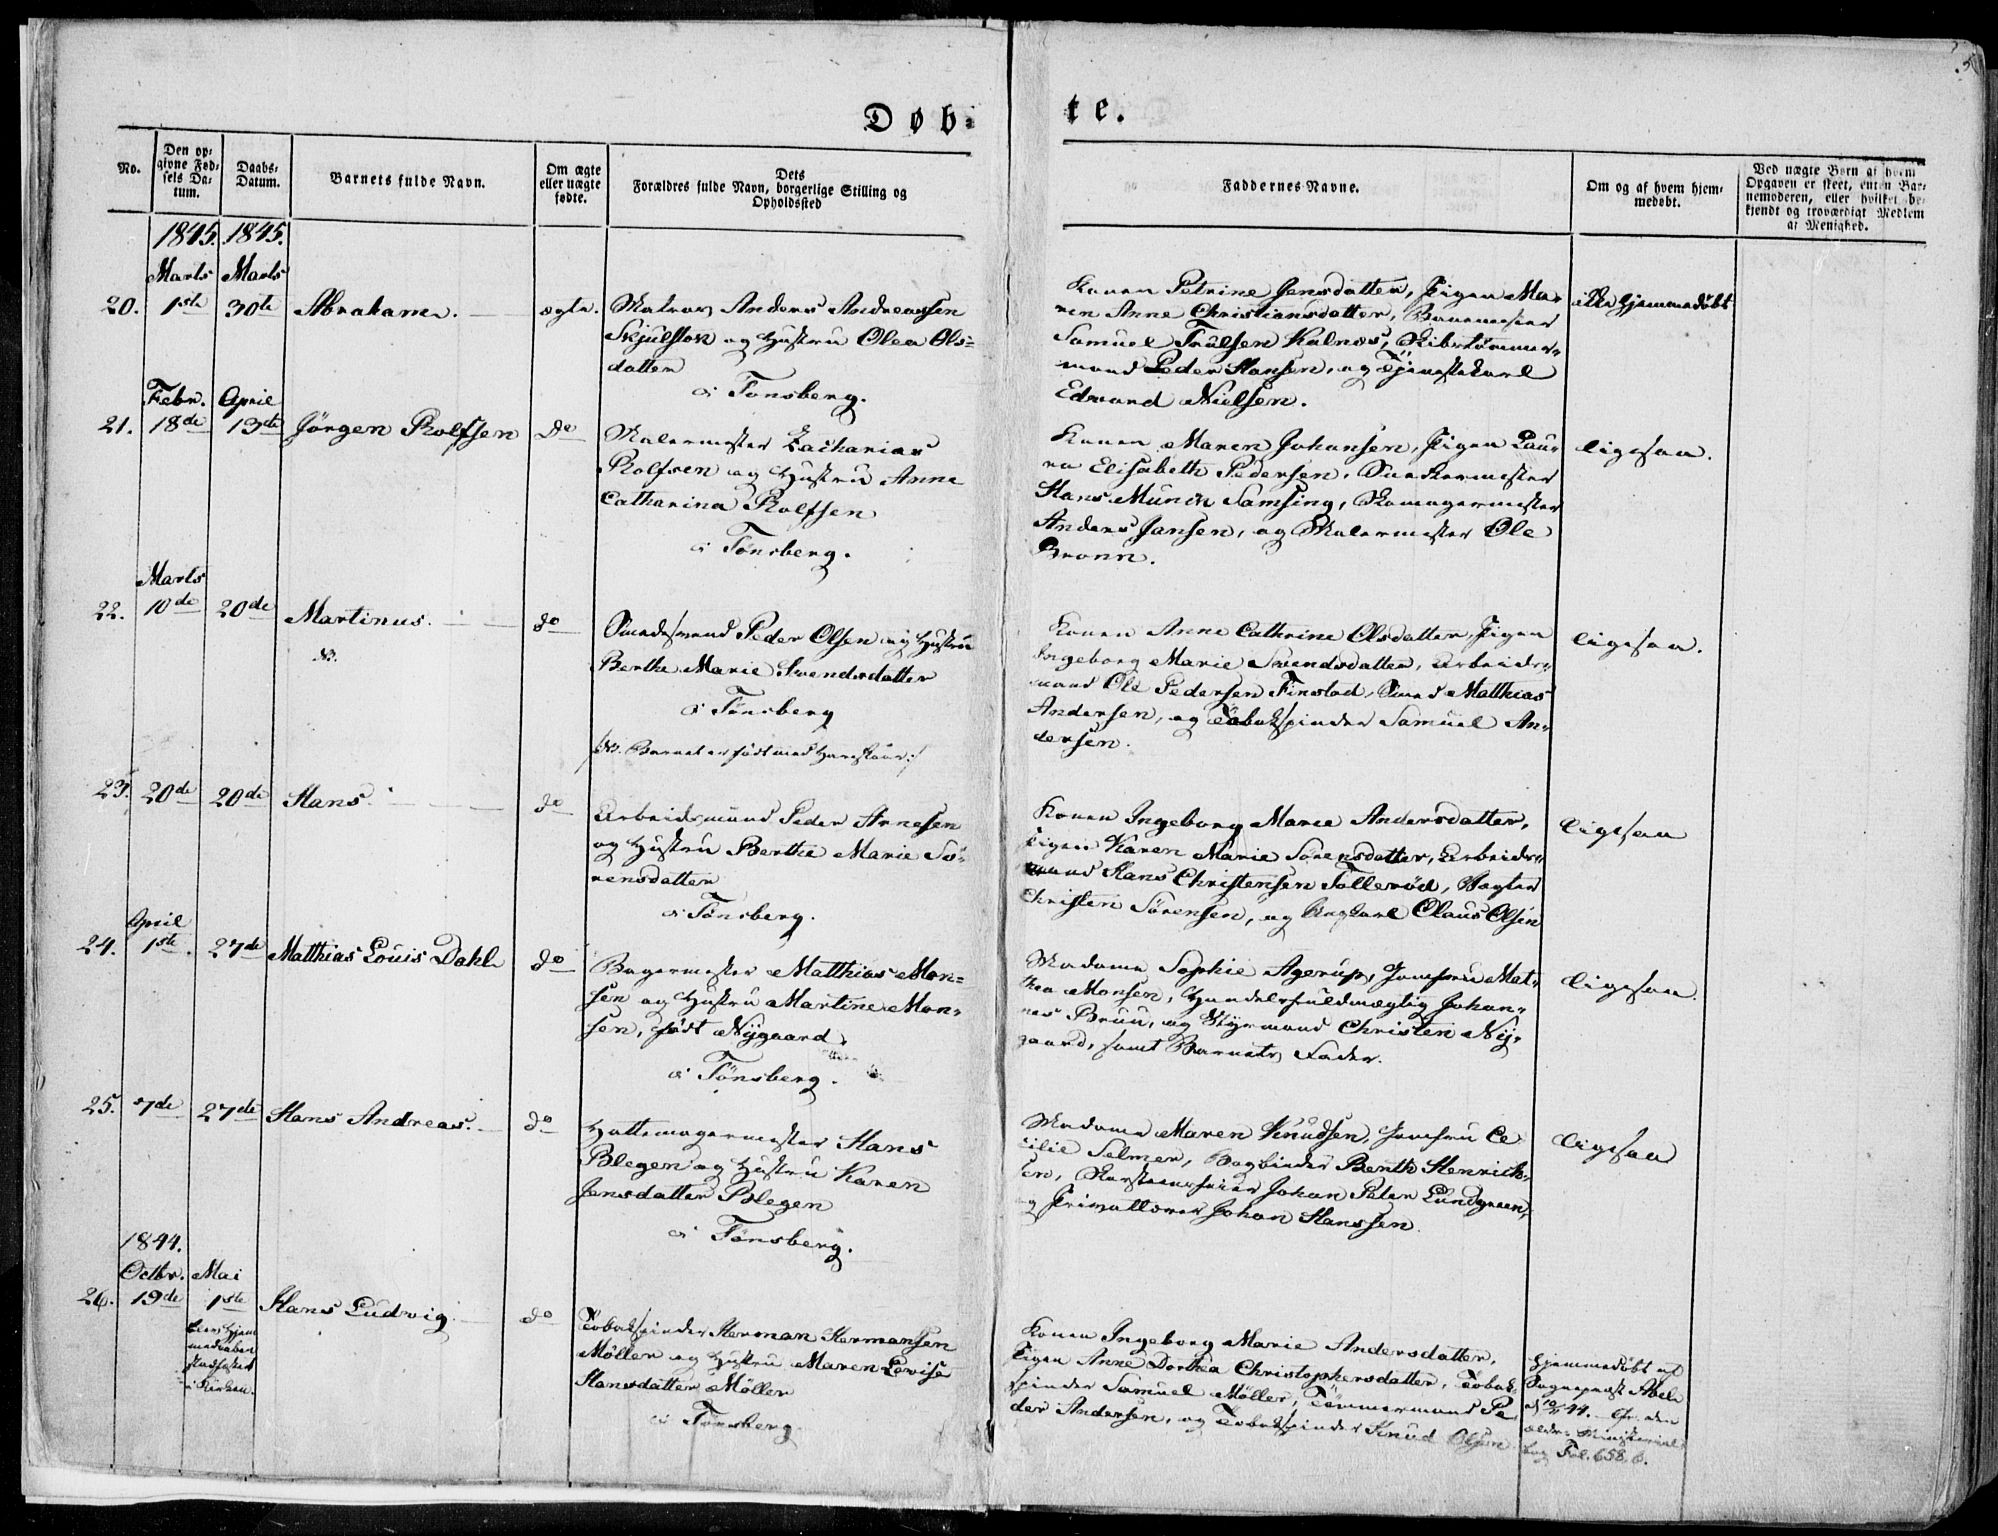 5
Døb-
te.
No.
Den op-
givne Fød-
sels Da-
tum.
Daabs-
Datum.
Barnets fulde Navn.
Om ægte
eller uægte
fødte.
Dets
Forældres fulde Navn, borgerlige Stilling og
Opholdssted
Faddernes Navne.
Om og af hvem hjem-
medøbt.
Ved uægte Børn af hvem
Opgaven er skeet, enten Bar-
nemoderen, eller hvilket be-
kjendt og troværdigt Medlem
af Menighed.
1845. 1845.
Marts Marts
20. 1ste 30te Abraham. ægte.
Matros Anders Andreassen
og Hustru Olea Ols-
datter
i Tønsberg.
Konen Petrine Jensdatter, Pigen Ma-
ren Anne Christiansdatter,
Samuel Trulsen Kalnæs, Skibstømmer-
mand Peder Hansen, og Tjenestekarl
Edvard Nielsen.
ikke hjemmedøbt
Febr. April
21. 18de 13de Jörgen Rolfsen do
Malermester Zacharias
Rolfsen og Hustru Anne
Catharina Rolfsen
i Tønsberg.
Konen Maren Johansen, Pigen Lau-
ra Elisabeth Pedersen, Snedkermester
Hans Munch Samsing, Skomagermester
Anders Jansen, og Malermester Ole
Bronn.
ligesaa.
Marts
22. 10de 20de Martinus. do
NB.
Smedsvend Peder Olsen og Hustru
Berthe Marie Svendsdatter
i Tønsberg
/:NB. Barnet er født med Hareskaar:/
Konen Anne Cathrine Olsdatter, Pigen
Ingeborg Marie Svendsdatter, Arbeids-
mand Ole Pedersen Finstad, Smed Matthias
Andersen, og Tobakspinder Samuel An-
dersen.
ligesaa.
23. 20de 20de Hans. do
Arbeidsmand Peder Arnesen
og Hustru Berthe Marie Sö-
rensdatter
i Tønsberg.
Konen Ingeborg Marie Andersdatter,
Pigen Karen Marie Sörensdatter, Arbeids-
mand Hans Christensen Tollerød, Vægter
Christen Sörensen, og Ungkarl Claus Olsen
ligesaa
April
24. 1ste. 27de Matthias Louis Dahl do
Bagermester Matthias Mon-
sen og Hustru Martine Mon-
sen, født Nygaard,
i Tønsberg.
Madame Sophie Agerup, Jomfru Mat-
hea Monsen, Handelsfuldmægtig Johan-
nes Bruu, og Styrmand Christen Ny-
gaard, samt Barnets Fader.
ligesaa.
25. 7de 27de Hans Andreas. do
Hattemagermester Hans
Blegen og Hustru Karen
Jensdatter Blegen
i Tønsberg.
Madame Maren Knudsen, Jomfru Ce-
cilie Selmer, Bogbinder Benth Henrik-
sen, Skorsteensfeier Johan Peter Lundgreen,
og Johan Hanssen.
ligesaa
1844.
Octbr. Mai
26. 19de 1ste Hans Ludvig. do
hjem
medaaben
stadfæstet
i Kirken.
Tobakspinder Herman Hermansen
Möller og Hustru Maren Lovise
Hansdatter Möller
i Tønsberg.
Konen Ingeborg Marie Andersdatter,
Pigen Anne Dorthea Christophersdatter, Tobak-
spinder Samuel Möller, Tömmermand Pe-
der Andersen, og Tobakspinder Knud Olsen
Hjemmedøbt af
Sognepræst Abel
44. Cfr. den
ældre Ministerial
bog Fol. 658, 6.